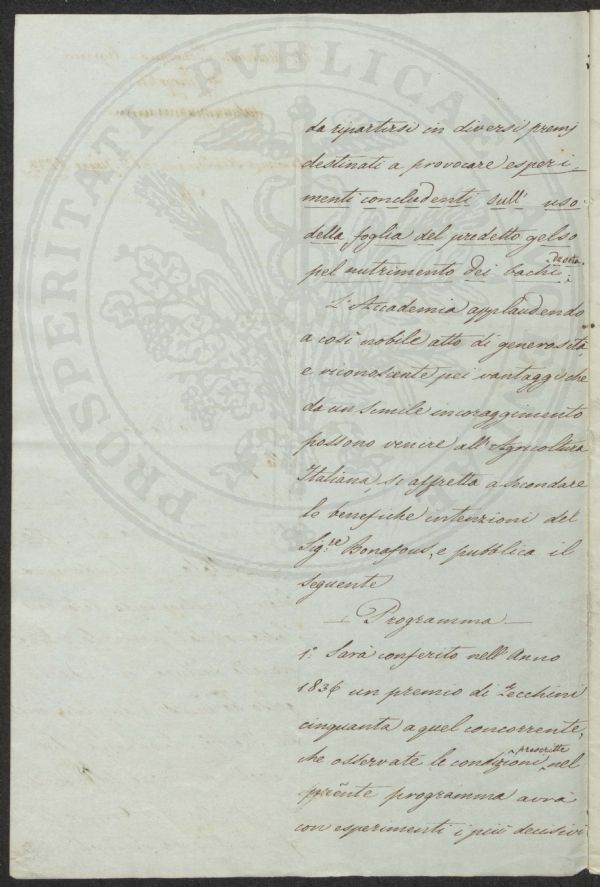 PROSPERITATI PVBLICAE AVGENDAE
da ripartirsi in diversi premj
destinati a provocare esperi-
menti concludenti sull' uso
della foglia del predetto gelso
pel nutrimento dei bachi da seta.
L'Accademia applaudendo
a così nobile atto di generosità,
e riconoscente pei vantaggi che
da un simile incoraggimento
possono venire all'Agricoltura
Italiana, si affretta a secondare
le benefiche intenzioni del
Sig.re Bonafous, e pubblica il
seguente
— Programma —
1.° Sarà conferito nell'Anno
1836 un premio di Zecchini
cinquanta a quel concorrente,
che osservate le condizioni prescritte nel
pñte programma avrà
con esperimenti i più decisivi